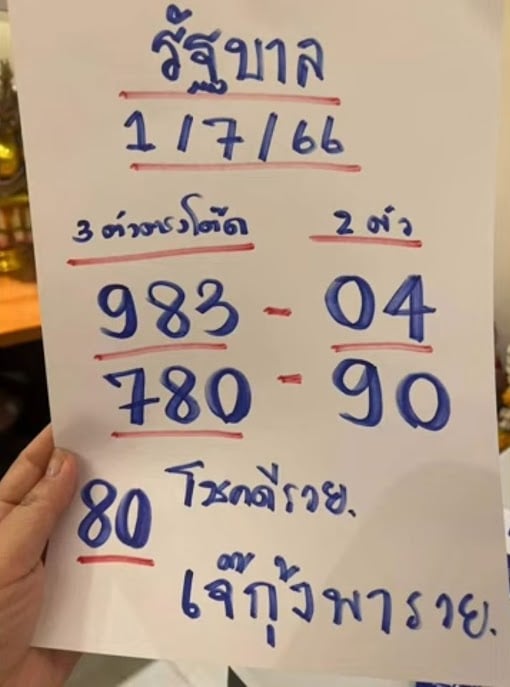 รัฐบาล
1/7/66
3 ตัวตรงโต๊ด 2 ตัว
983 - 04
780 - 90
80 โชคดีรวย.
เจ๊กุ้งพารวย.